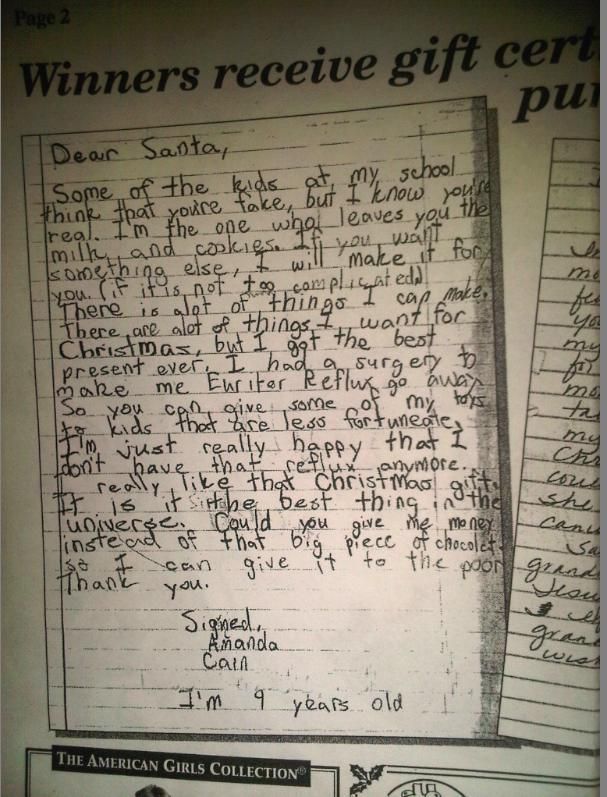 Page 2
Winners receive gift cert
pur
Dear Santa,
Some of the kids at my school
think that you're fake, but I know you're
real. I'm the one who leaves you the
milk, and cookies. If you want
something else, I will make it for
you. (if it is not too complicated)
There is alot of things I can make.
There are alot of things I want for
Christmas, but I got the best
present ever. I had a surgery to
make me Euriter Reflux go away
So you can give some of my toys
to kids that are less fortuneate.
I'm just really happy that I
don't have that reflux anymore.
I really like that Christmas gift.
It is it the best thing in the
universe. Could you give me money
instead of that big piece of chocolet.
so I can give it to the poor
Thank you.
Signed,
Amanda
Cain
I'm 9 years old
my
coul
she
grand
Jesu
gran
wis
THE AMERICAN GIRLS COLLECTION®